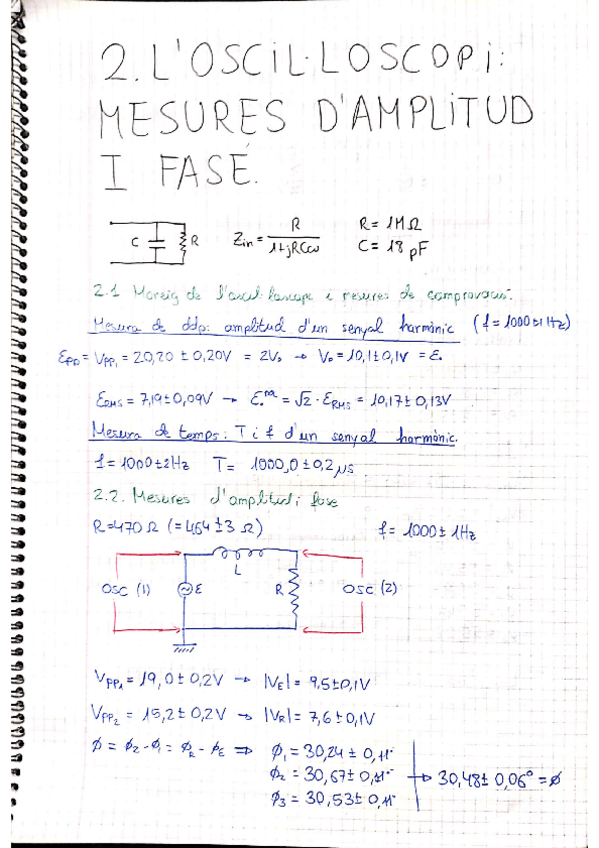 2. L'OSCIL·LOSCOPI:
MESURES D'AMPLITUD
I FASE.
C R Zin = R / 1+jRCω R = 1MΩ
C = 18 pF
2.1 Maneig de l'oscil·loscopi i mesures de comprovació.
Mesura de ddp: amplitud d'un senyal harmònic (f = 1000±1Hz)
εpp = Vpp₁ = 20,20 ± 0,20V = 2V₀ → V₀ = 10,1±0,1V = ε₀
εRMS = 7,19±0,09V → ε₀ = √2 · εRMS = 10,17±0,13V
Mesura de temps: T i f d'un senyal harmònic.
f = 1000±2Hz T = 1000,0±0,2 μs
2.2. Mesures d'amplitud i fase
R=470 Ω (= 464±3 Ω) f = 1000± 1Hz
L
OSC (1) ε R OSC (2)
Vpp₁ = 19,0±0,2V → |VE| = 9,5±0,1V
Vpp₂ = 15,2±0,2V → |VR| = 7,6±0,1V
ø = ø₂ - ø₁ = øR - øE ⇒ ø₁ = 30,24 ± 0,11°
ø₂ = 30,67± 0,11° → 30,48± 0,06° = ø
ø₃ = 30,53± 0,11°